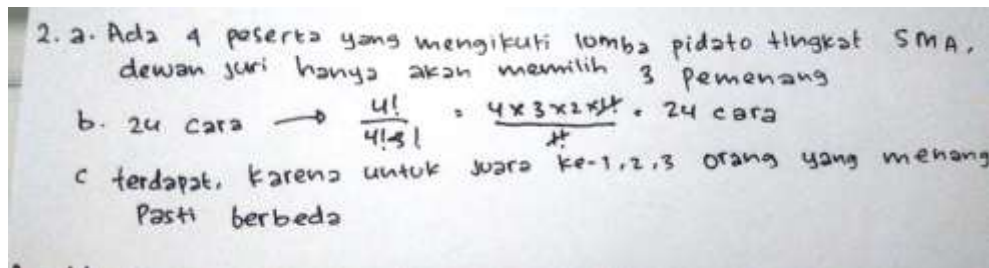 2. a. Ada 4 peserta yang mengikuti lomba pidato tingkat SMA,
dewan juri hanya akan memilih 3 pemenang
b. 24 cara → 4!/4!-3! = 4x3x2x1!/1! = 24 cara
c terdapat, karena untuk juara ke-1,2,3 orang yang menang
Pasti berbeda